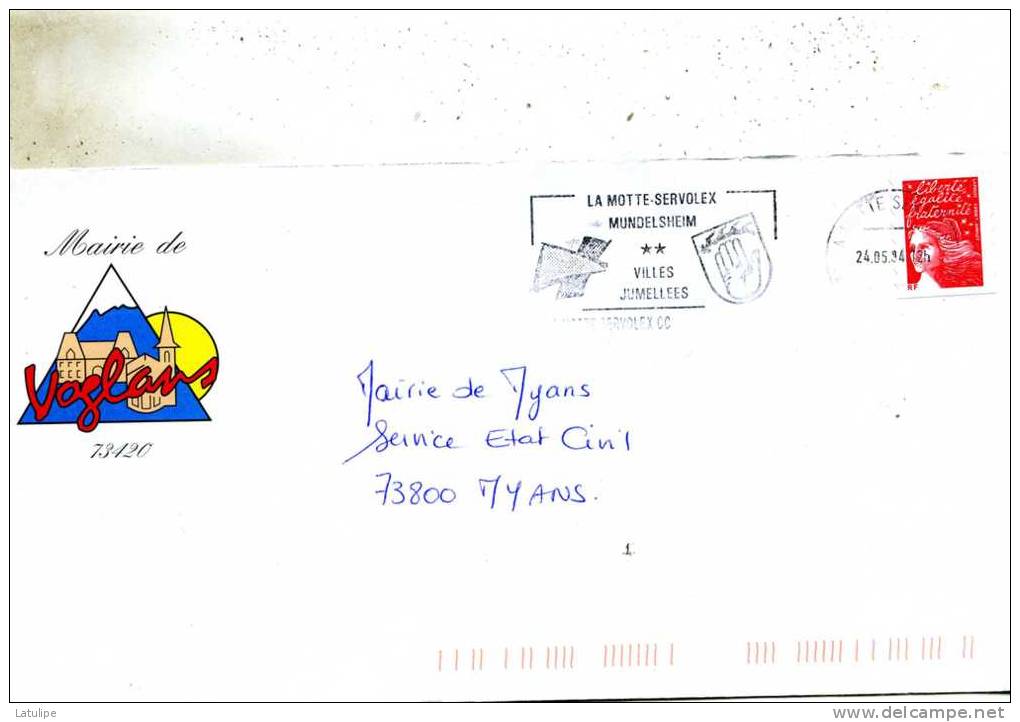 LA MOTTE-SERVOLEX
MUNDELSHEIM
VILLES
JUMELLEES
SERVOLEX CC
24.05.94 12h
liberté
égalité
fraternité
RF
Mairie de
Voglans
73420
Mairie de Myans
Service Etat Civil
73800 MYANS.
1
Latulipe
www.delcampe.net